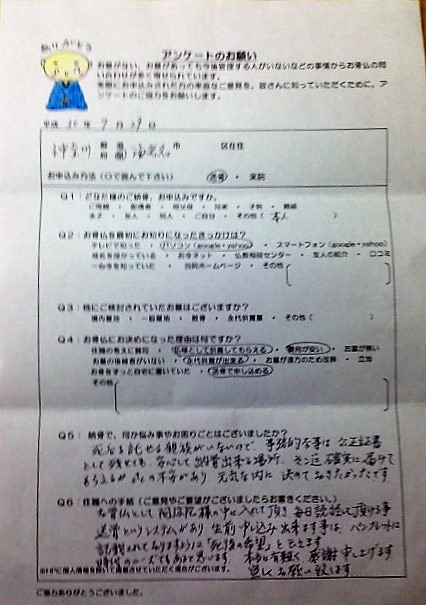 アンケートのお願い
お墓がない、お墓があっても今後管理する人がいないなどの事情からお骨仏の問
い合わせが多く寄せられています。
実際にお申込みされた方の率直なご意見を、皆さんに知っていただくために、ア
ンケートのご協力をお願いします。
平成 26年 9月29日
神奈川 都道府県 海老名 市 区在住
お申込み方法（〇で選んで下さい） 送骨 ・ 来院
Q1：どなた様のご納骨、お申込みですか。
ご両親 ・ 配偶者 ・ 祖父母 ・ 兄弟 ・ 子供 ・ 親戚
水子 ・ 友人 ・ 知人 ・ ご自分 ・ その他（ 本人 ）
Q2：お骨仏を最初にお知りになったきっかけは？
テレビで知った ・ パソコン（google・yahoo） ・ スマートフォン（google・yahoo）
・ お寺ネット ・ 仏教相談センター ・ 友人の紹介 ・ 口コミ
一心寺を知っていた ・ 当院ホームページ ・ その他
Q3：他にご検討されていたお墓はございますか？
境内墓地 ・ 一般墓地 ・ 散骨 ・ 永代供養墓 ・ その他（ ）
Q4：お骨仏にお決めになった理由は何ですか？
住職の考えに賛同 ・ 仏様として供養してもらえる ・ 費用が安い ・ お墓が無い
お墓の後継者がいない ・ 永代供養が出来る ・ お墓が遠方のため改葬 ・ 立地
お骨をずっと自宅に置いていた ・ 送骨で申し込める
その他
Q5：納骨で、何か悩み事やお困りごとはございましたか？
死后を託せる親族がいないので、事務的な事は公正証書
として残せても、安心して納骨出来る場所、そこ迄確実に届けて
もらえるか などの不安があり 元気な内に 決めておきたかったです
Q6：住職への手紙（ご意見やご要望がございましたらお書きください。）
お骨仏として阿弥陀様の中に入れて頂き 毎日読経して頂ける事
送骨というシステムがあり 生前申し込み出来ます事は、パンフレットに
記載されておりますように「死後の希望」と言えます
時代のニーズでもあると思います 本当に有難く 感謝申し上げます
宜しくお願い致します
※HPに個人情報を除いて掲載させていただく場合がございます。
ご協力ありがとうございました。